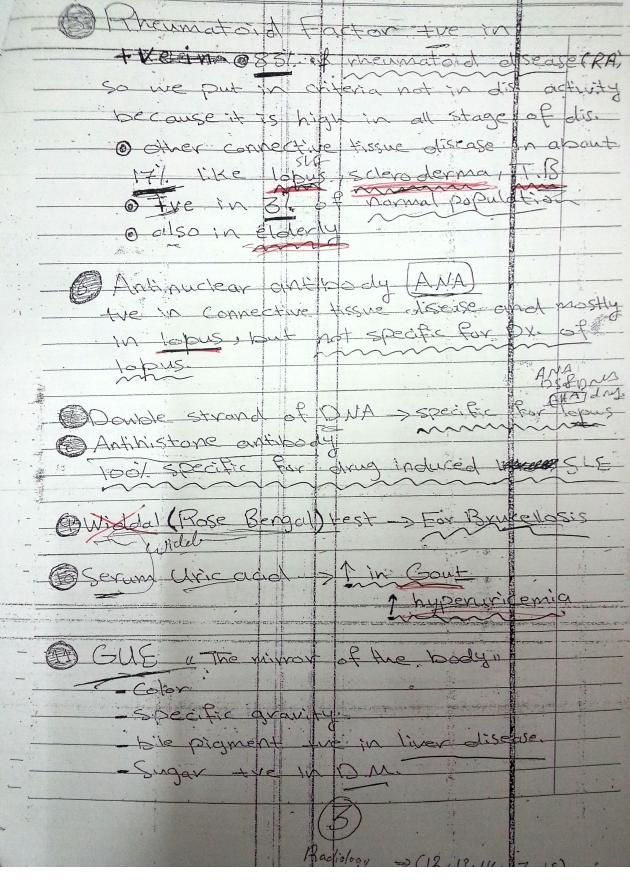 ⑤ Rheumatoid Factor +ve in
+ve in @ 83% of rheumatoid disease (RA)
so we put in criteria not in dis activity
because it is high in all stage of dis.
⊙ other connective tissue disease in about
SLE
17% like lopus, scleroderma, T.B
⊙ +ve in 3% of normal population
⊙ also in elderly
⑥ Antinuclear antibody ANA
+ve in connective tissue disease and mostly
in lopus, but not specific for Dx. of
lopus.
ANA
Double strand of DNA → specific for lopus
Antihistone antibody
100% specific for drug induced SLE
Widdal (Rose Bengal) test → For Brucellosis
Widdal
⑩ Serum Uric acid → ↑ in Gout
↑ hyperuricemia
⑪ GUE "The mirror of the body"
- Color
- Specific gravity.
- bile pigment +ve in liver disease.
- Sugar +ve in D.M.
3
Radiology →